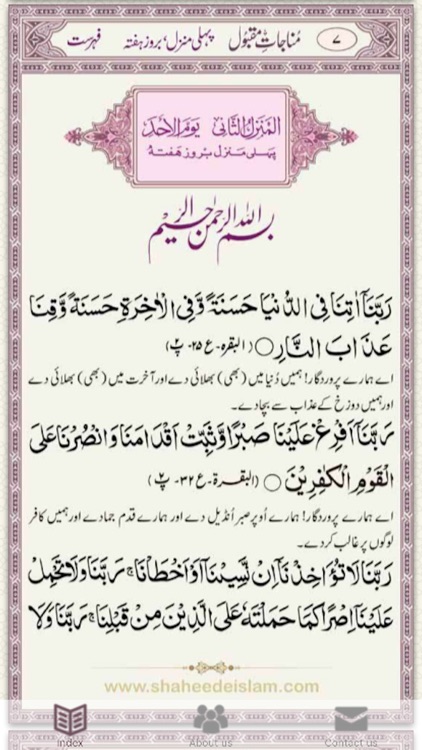 ۷ مُناجاتِ مقبُول پہلی منزل، بروز ہفتہ فہرست
اَلْمَنْزِلُ الثَّانِیْ یَوْمَ الْاَحَدِ
پہلی منزل بروز ہفتہ
بسم الله الرحمن الرحیم
رَبَّنَآ اٰتِنَا فِی الدُّنْیَا حَسَنَةً وَّفِی الْاٰخِرَةِ حَسَنَةً وَّقِنَا
عَذَابَ النَّارِ ○ (البقرہ۔ع ۲۵۔ پ۲)
اے ہمارے پروردگار! ہمیں دُنیا میں (بھی) بھلائی دے اور آخرت میں (بھی) بھلائی دے
اور ہمیں دوزخ کے عذاب سے بچادے۔
رَبَّنَآ اَفْرِغْ عَلَیْنَا صَبْرًا وَّثَبِّتْ اَقْدَامَنَا وَانْصُرْنَا عَلَی
الْقَوْمِ الْکٰفِرِیْنَ ○ (البقرۃ۔ع ۳۲۔ پ۲)
اے ہمارے پروردگار! ہمارے اُوپر صبر اُنڈیل دے اور ہمارے قدم جمادے اور ہمیں کافر
لوگوں پر غالب کردے۔
رَبَّنَا لَا تُؤَاخِذْنَآ اِنْ نَّسِیْنَآ اَوْ اَخْطَاْنَا ۚ رَبَّنَا وَلَا تَحْمِلْ
عَلَیْنَآ اِصْرًا کَمَا حَمَلْتَهٗ عَلَی الَّذِیْنَ مِنْ قَبْلِنَا ۚ رَبَّنَا وَلَا
www.shaheedeislam.com
Index About us Contact us